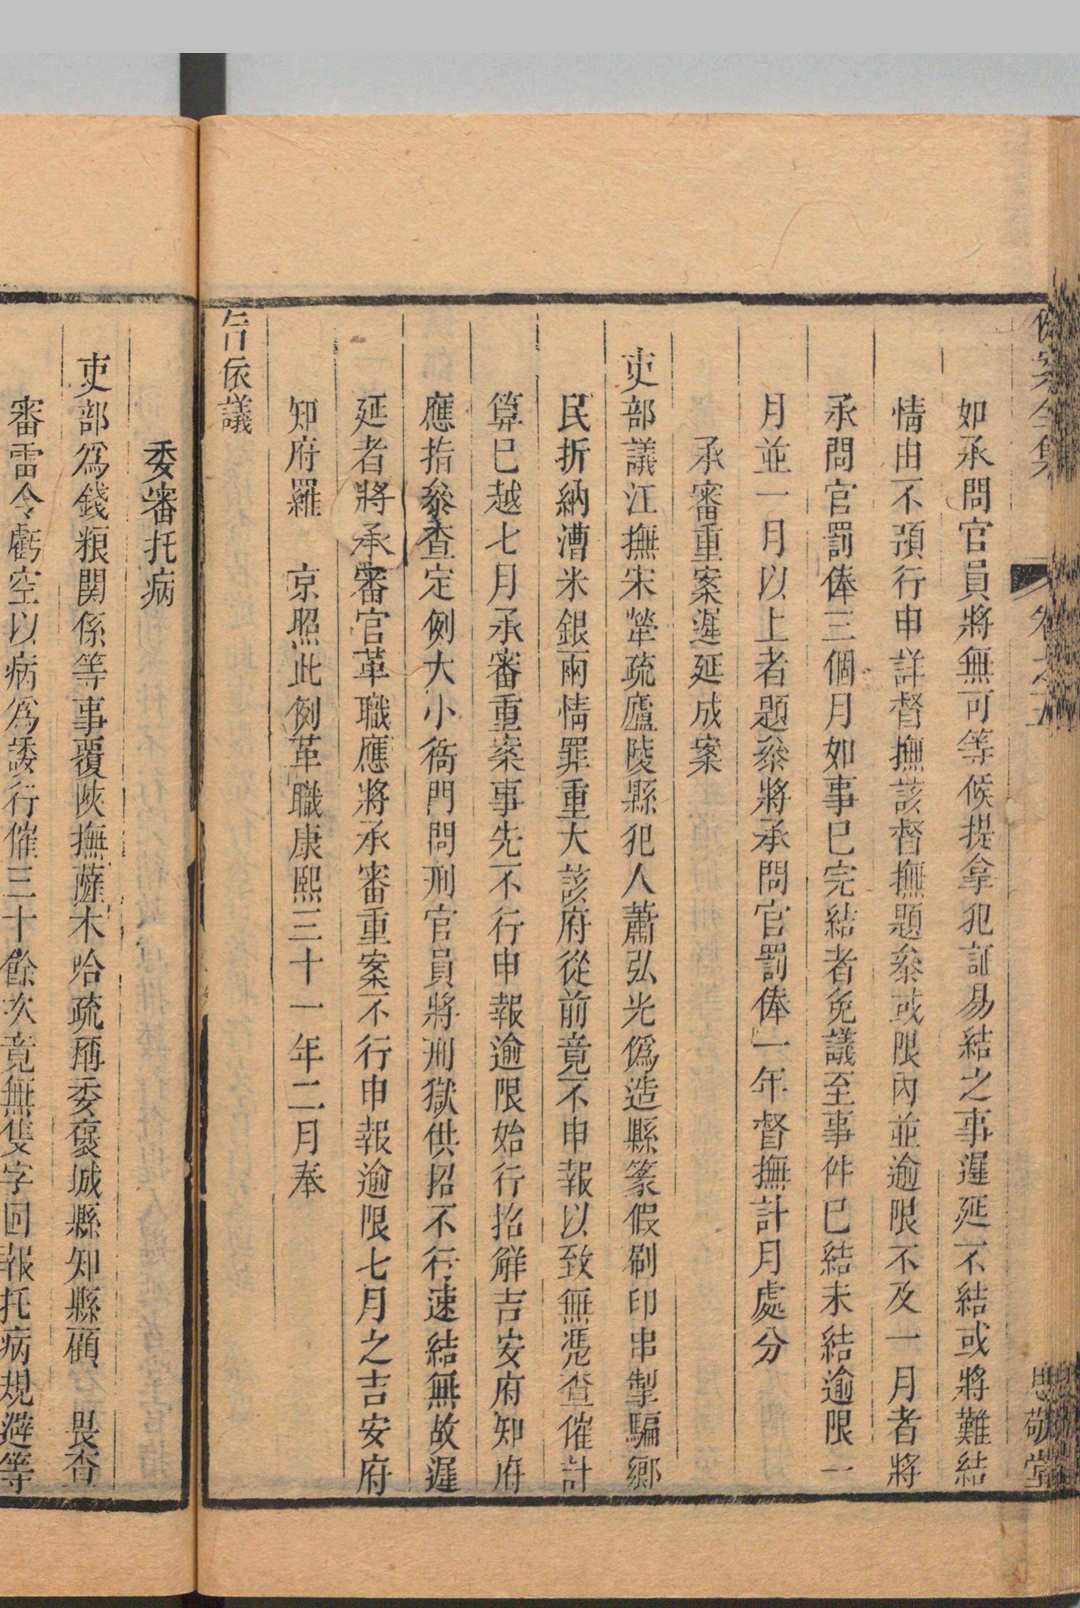 例案全集 卷之五 思敬堂
如承問官員將無可等候提拿犯証易結之事遲延不結或將難結
情由不預行申詳督撫該督撫題叅或限內並逾限不及一月者將
承問官罰俸三個月如事已完結者免議至事件已結未結逾限一
月並一月以上者題叅將承問官罰俸一年督撫計月處分
承審重案遲延成案
吏部議江撫宋犖疏廬陵縣犯人蕭弘光僞造縣篆假刷印串掣騙鄉
民折納漕米銀兩情罪重大該府從前竟不申報以致無憑查催計
算已越七月承審重案事先不行申報逾限始行招解吉安府知府
應指叅查定例大小衙門問刑官員將刑獄供招不行速結無故遲
延者將承審官革職應將承審重案不行申報逾限七月之吉安府
知府羅 京照此例革職康熙三十一年二月奉
旨依議
委審托病
吏部爲錢粮関係等事覆陝撫薩木哈疏稱委褒城縣知縣顧 畏查
審雷令虧空以病爲諉行催三十餘次竟無隻字回報托病規避等